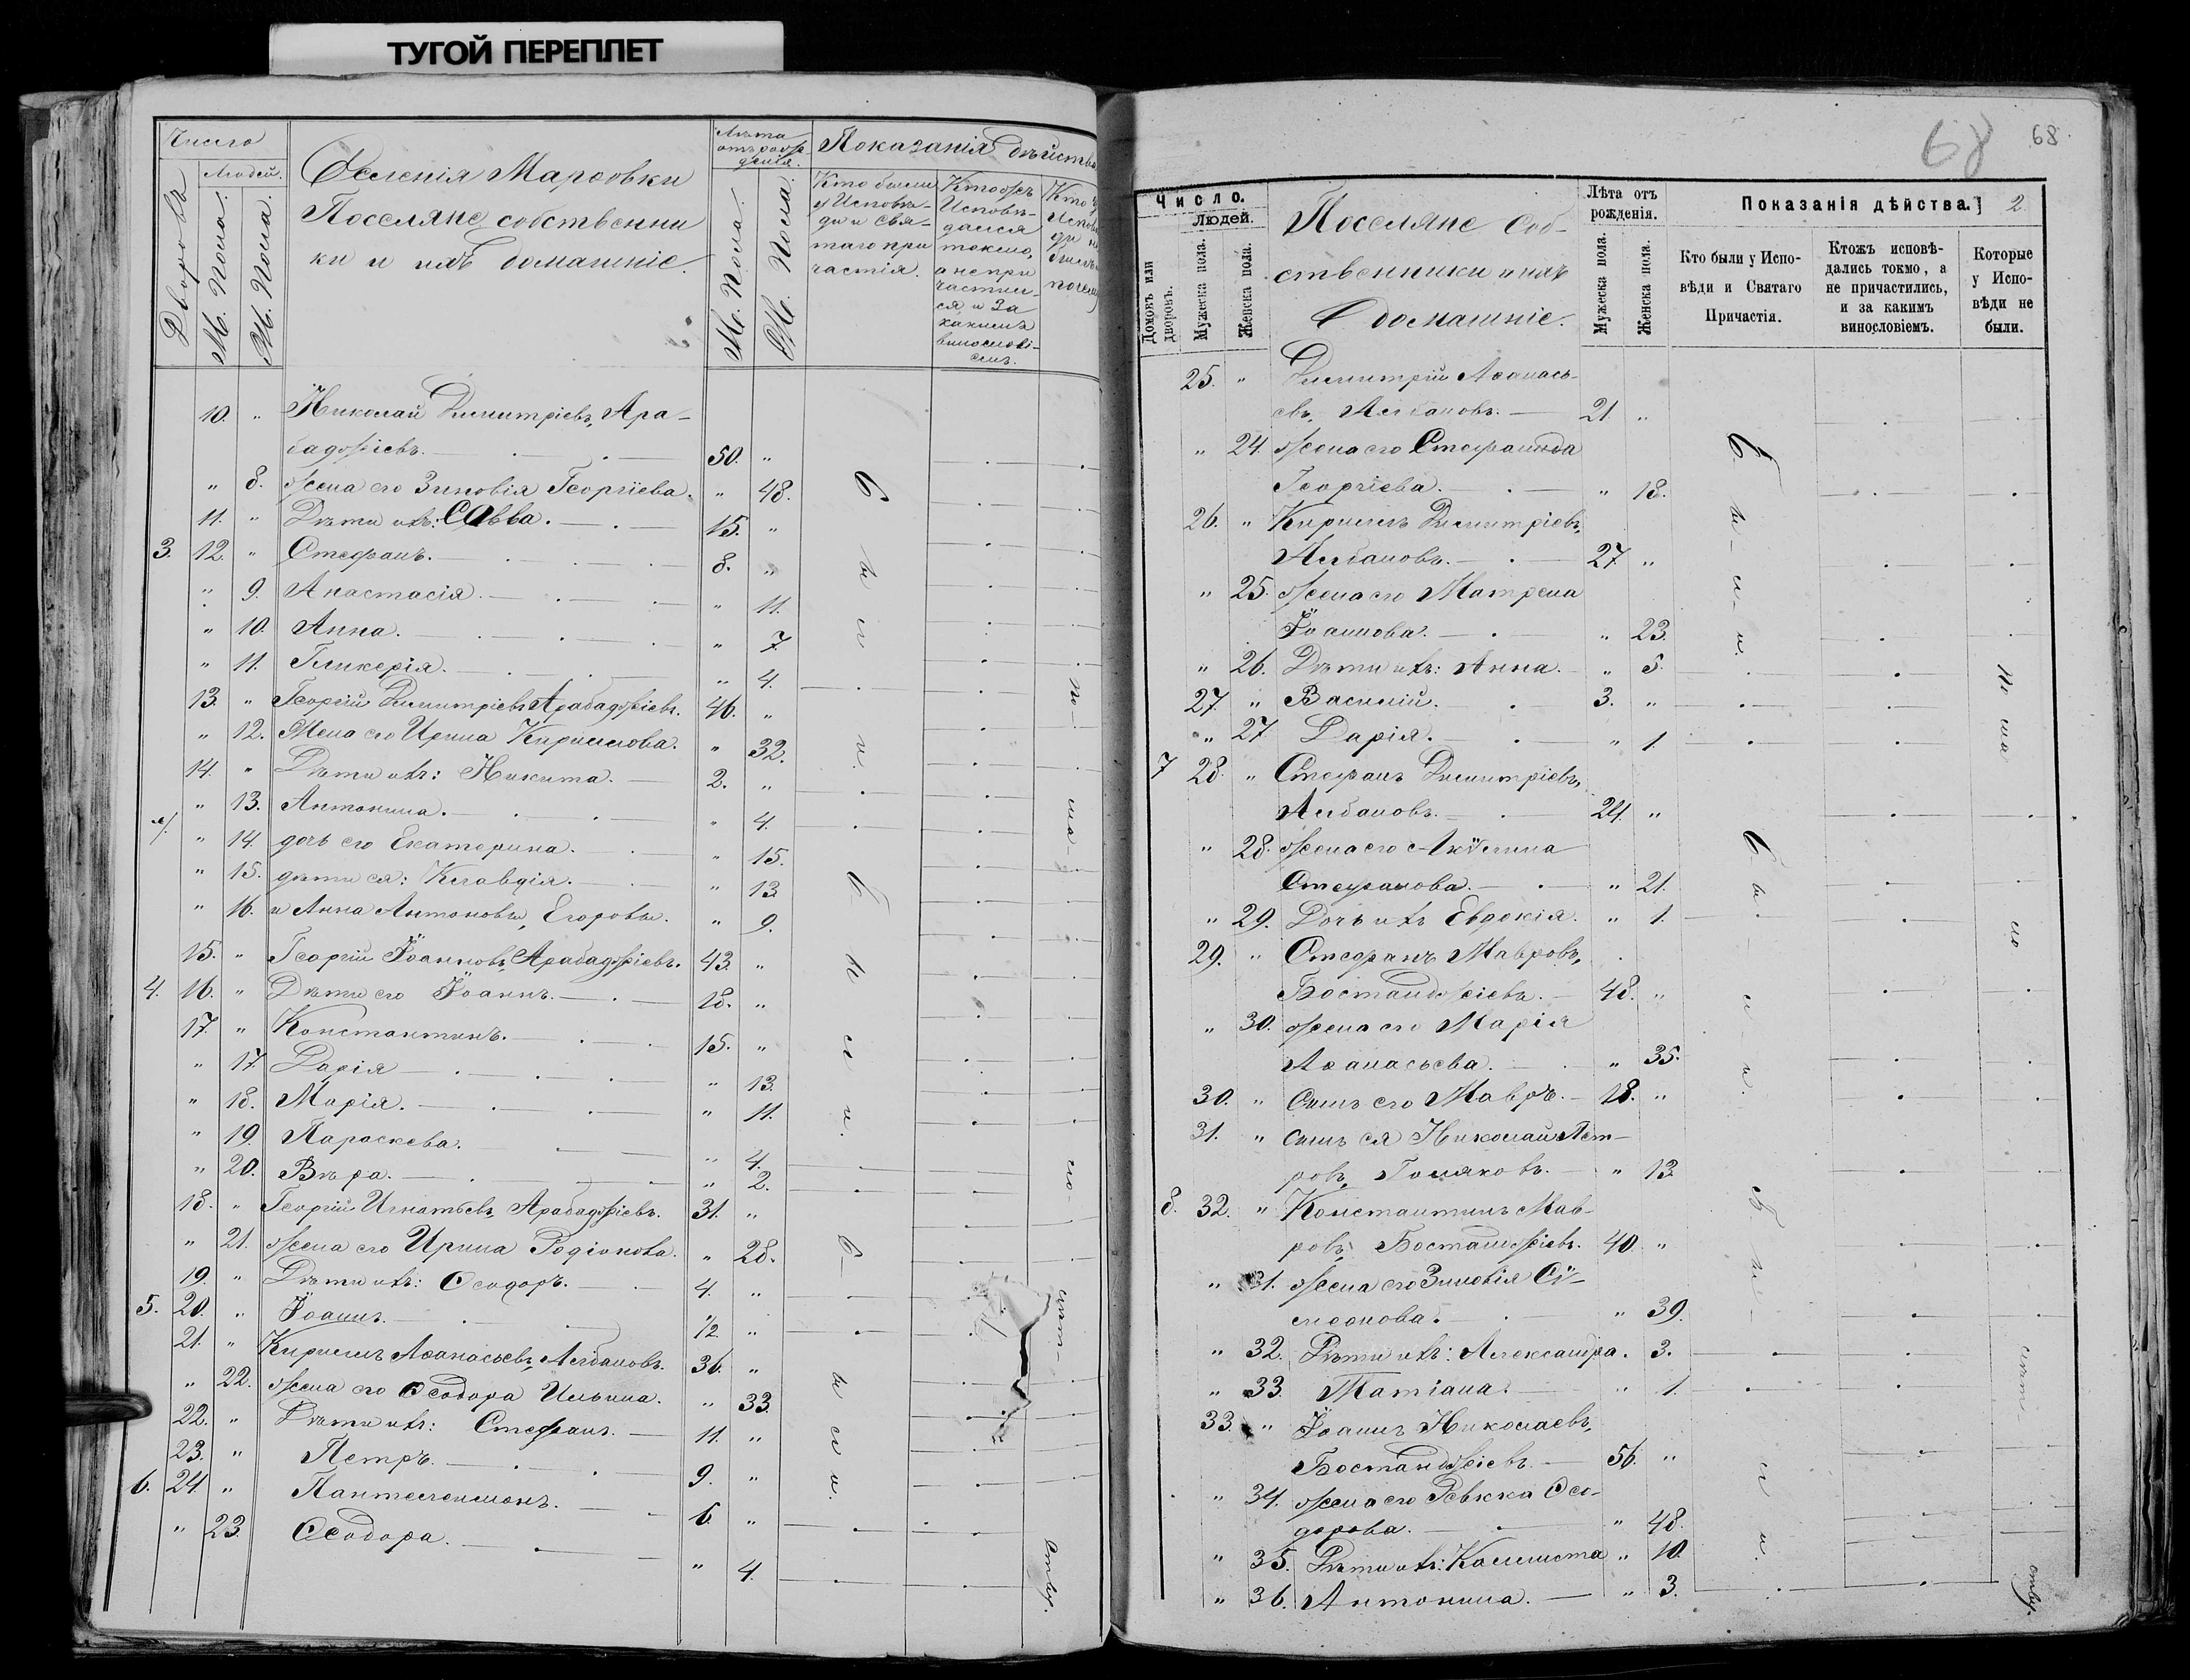 ТУГОЙ ПЕРЕПЛЕТ
Число
Людей.
Дворовъ
М. Пола.
Ж. Пола.
Селенія Марѳовки
Поселяне собственни
ки и ихъ домашніе.
Лѣта
отъ рож
денія.
М. Пола.
Ж. Пола.
Показанія дѣйства
Кто были
у Исповѣ-
ди и свя-
таго при
частія.
Ктожъ
Исповѣ-
дался
токмо,
а не при
частил-
ся, и за
какимъ
винослові-
емъ.
10. " Николай Димитріевъ, Ара-
баджіевъ. 50. "
" 8. жена его Зиновія Георгіева. " 48.
11. " Дѣти ихъ: Савва. 15. "
3. 12. " Стефанъ. 8. "
" 9. Анастасія. " 11.
" 10. Анна. " 7.
" 11. Гликерія. " 4.
13. " Георгій Димитріевъ Арабаджіевъ. 46. "
" 12. Жена его Ирина Кириллова. " 32.
14. " Дѣти ихъ: Никита. 2. "
" 13. Антонина. " 4.
" 14. дочь его Екатерина. " 15.
" 15. дѣти ея: Клавдія. " 13.
" 16. и Анна Антоновы, Егоровы. " 9.
15. " Георгій Іоанновъ, Арабаджіевъ. 43. "
4. 16. " Дѣти его Іоаннъ. 18. "
17. " Константинъ. 15. "
" 17. Дарія " 13.
" 18. Марія. " 11.
" 19. Параскева. " 4.
" 20. Вѣра. " 2.
18. " Георгій Игнатьевъ, Арабаджіевъ. 31. "
" 21. жена его Ирина Родіонова. " 28.
19. " Дѣти ихъ: Ѳеодоръ. 4. "
5. 20. " Іоаннъ. 1/2 "
21. " Кириллъ Аѳанасьевъ, Албановъ. 36. "
" 22. жена его Ѳеодора Ильина. " 33.
22. " Дѣти ихъ: Стефанъ. 11. "
23. " Петръ. 9. "
6. 24. " Пантелеимонъ. 6. "
" 23. Ѳеодора. " 4.
б ы л и.
б ы л и.
б ы л и.
68
68.
Число.
Людей.
Домовъ или
дворовъ.
Мужеска пола.
Женска пола.
Поселяне соб-
ственники и ихъ
домашніе.
Лѣта отъ
рожденія.
Мужеска пола.
Женска пола.
Показанія дѣйства. 2
Кто были у Испо-
вѣди и Святаго
Причастія.
Ктожъ исповѣ-
дались токмо, а
не причастились,
и за какимъ
винословіемъ.
Которые
у Испо-
вѣди не
были.
25. " Димитрій Аѳанась-
евъ, Албановъ. 21. "
" 24. жена его Стефанида
Георгіева. " 18.
26. " Кириллъ Димитріевъ,
Албановъ. 27 "
" 25. жена его Матрена
Іоаннова. " 23.
" 26. Дѣти ихъ: Анна. " 5.
27. " Василій. 3. "
" 27 Дарія. " 1.
7 28. " Стефанъ Димитріевъ,
Албановъ. 24. "
" 28. жена его Акѵлина
Стефанова. " 21.
" 29. Дочь ихъ Евдокія. " 1.
29. " Стефанъ Мавровъ,
Бостанджіевъ. 48. "
" 30. жена его Марія
Аѳанасьева. " 35.
30. " Сынъ его Мавръ. 18. "
31. " сынъ ея Николай Пет-
ровъ, Поляковъ. " 13.
8. 32. " Константинъ Мав-
ровъ, Бостанжіевъ. 40. "
" 31. жена его Зиновія Сѵ-
меонова. " 39.
" 32. Дѣти ихъ: Александра. 3.
" 33. Татіана. " 1.
33. " Іоаннъ Николаевъ,
Бостанджіевъ. 56. "
" 34. жена его Ревкка Ѳео-
дорова. " 48.
" 35. Дѣти ихъ: Каллиста " 10.
" 36. Антонина. " 3.
б ы л и.
б ы л и.
б ы л и.